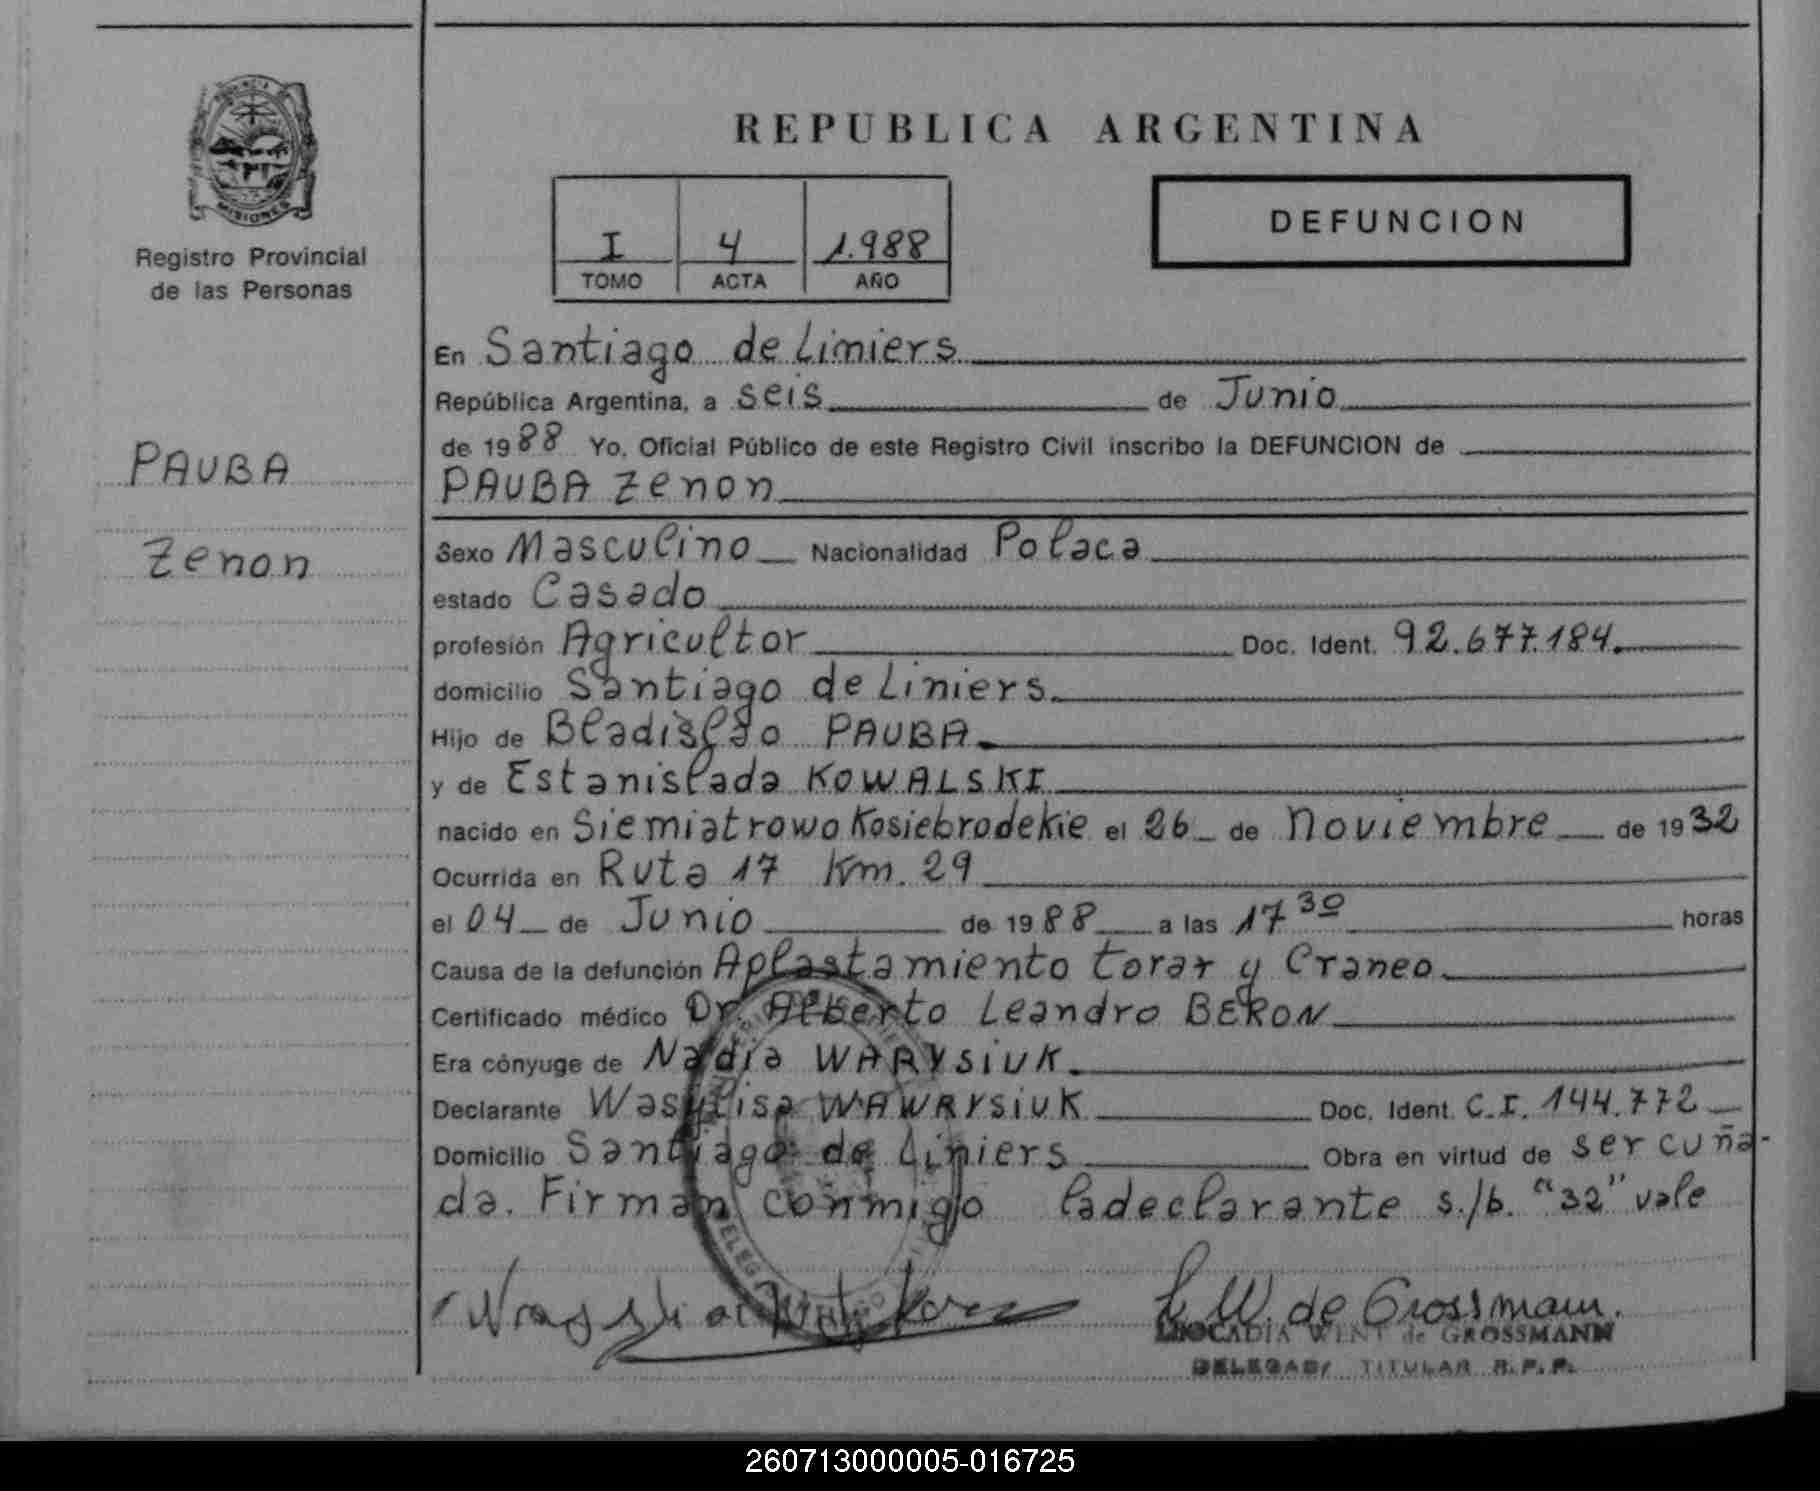 REPUBLICA ARGENTINA
MISIONES
Registro Provincial
de las Personas
I 4 1.988
TOMO ACTA AÑO
DEFUNCION
PAUBA
Zenon
En Santiago de Liniers
República Argentina, a seis de Junio
de 1988 Yo, Oficial Público de este Registro Civil inscribo la DEFUNCION de
PAUBA Zenon
Sexo Masculino Nacionalidad Polaca
estado Casado
profesión Agricultor Doc. Ident. 92.677.184.
domicilio Santiago de Liniers.
Hijo de Bladislao PAUBA.
y de Estanislada KOWALSKI
nacido en Siemiatrowo Kosiebrodekie el 26 de Noviembre de 1932
Ocurrida en Ruta 17 Km. 29
el 04 de Junio de 1988 a las 17 30 horas
Causa de la defunción Aplastamiento torax y Craneo.
Certificado médico Dr Alberto Leandro BERON
Era cónyuge de Nadia WARYSIUK.
Declarante Wasylisa WAWRYSIUK Doc. Ident. C.I. 144.772
Domicilio Santiago de Liniers Obra en virtud de ser cuña-
da. Firman conmigo la declarante s./b. "32" vale
L. W. de Grossmann.
LEOCADIA WENT de GROSSMANN
DELEGADA TITULAR R.P.P.
260713000005-016725